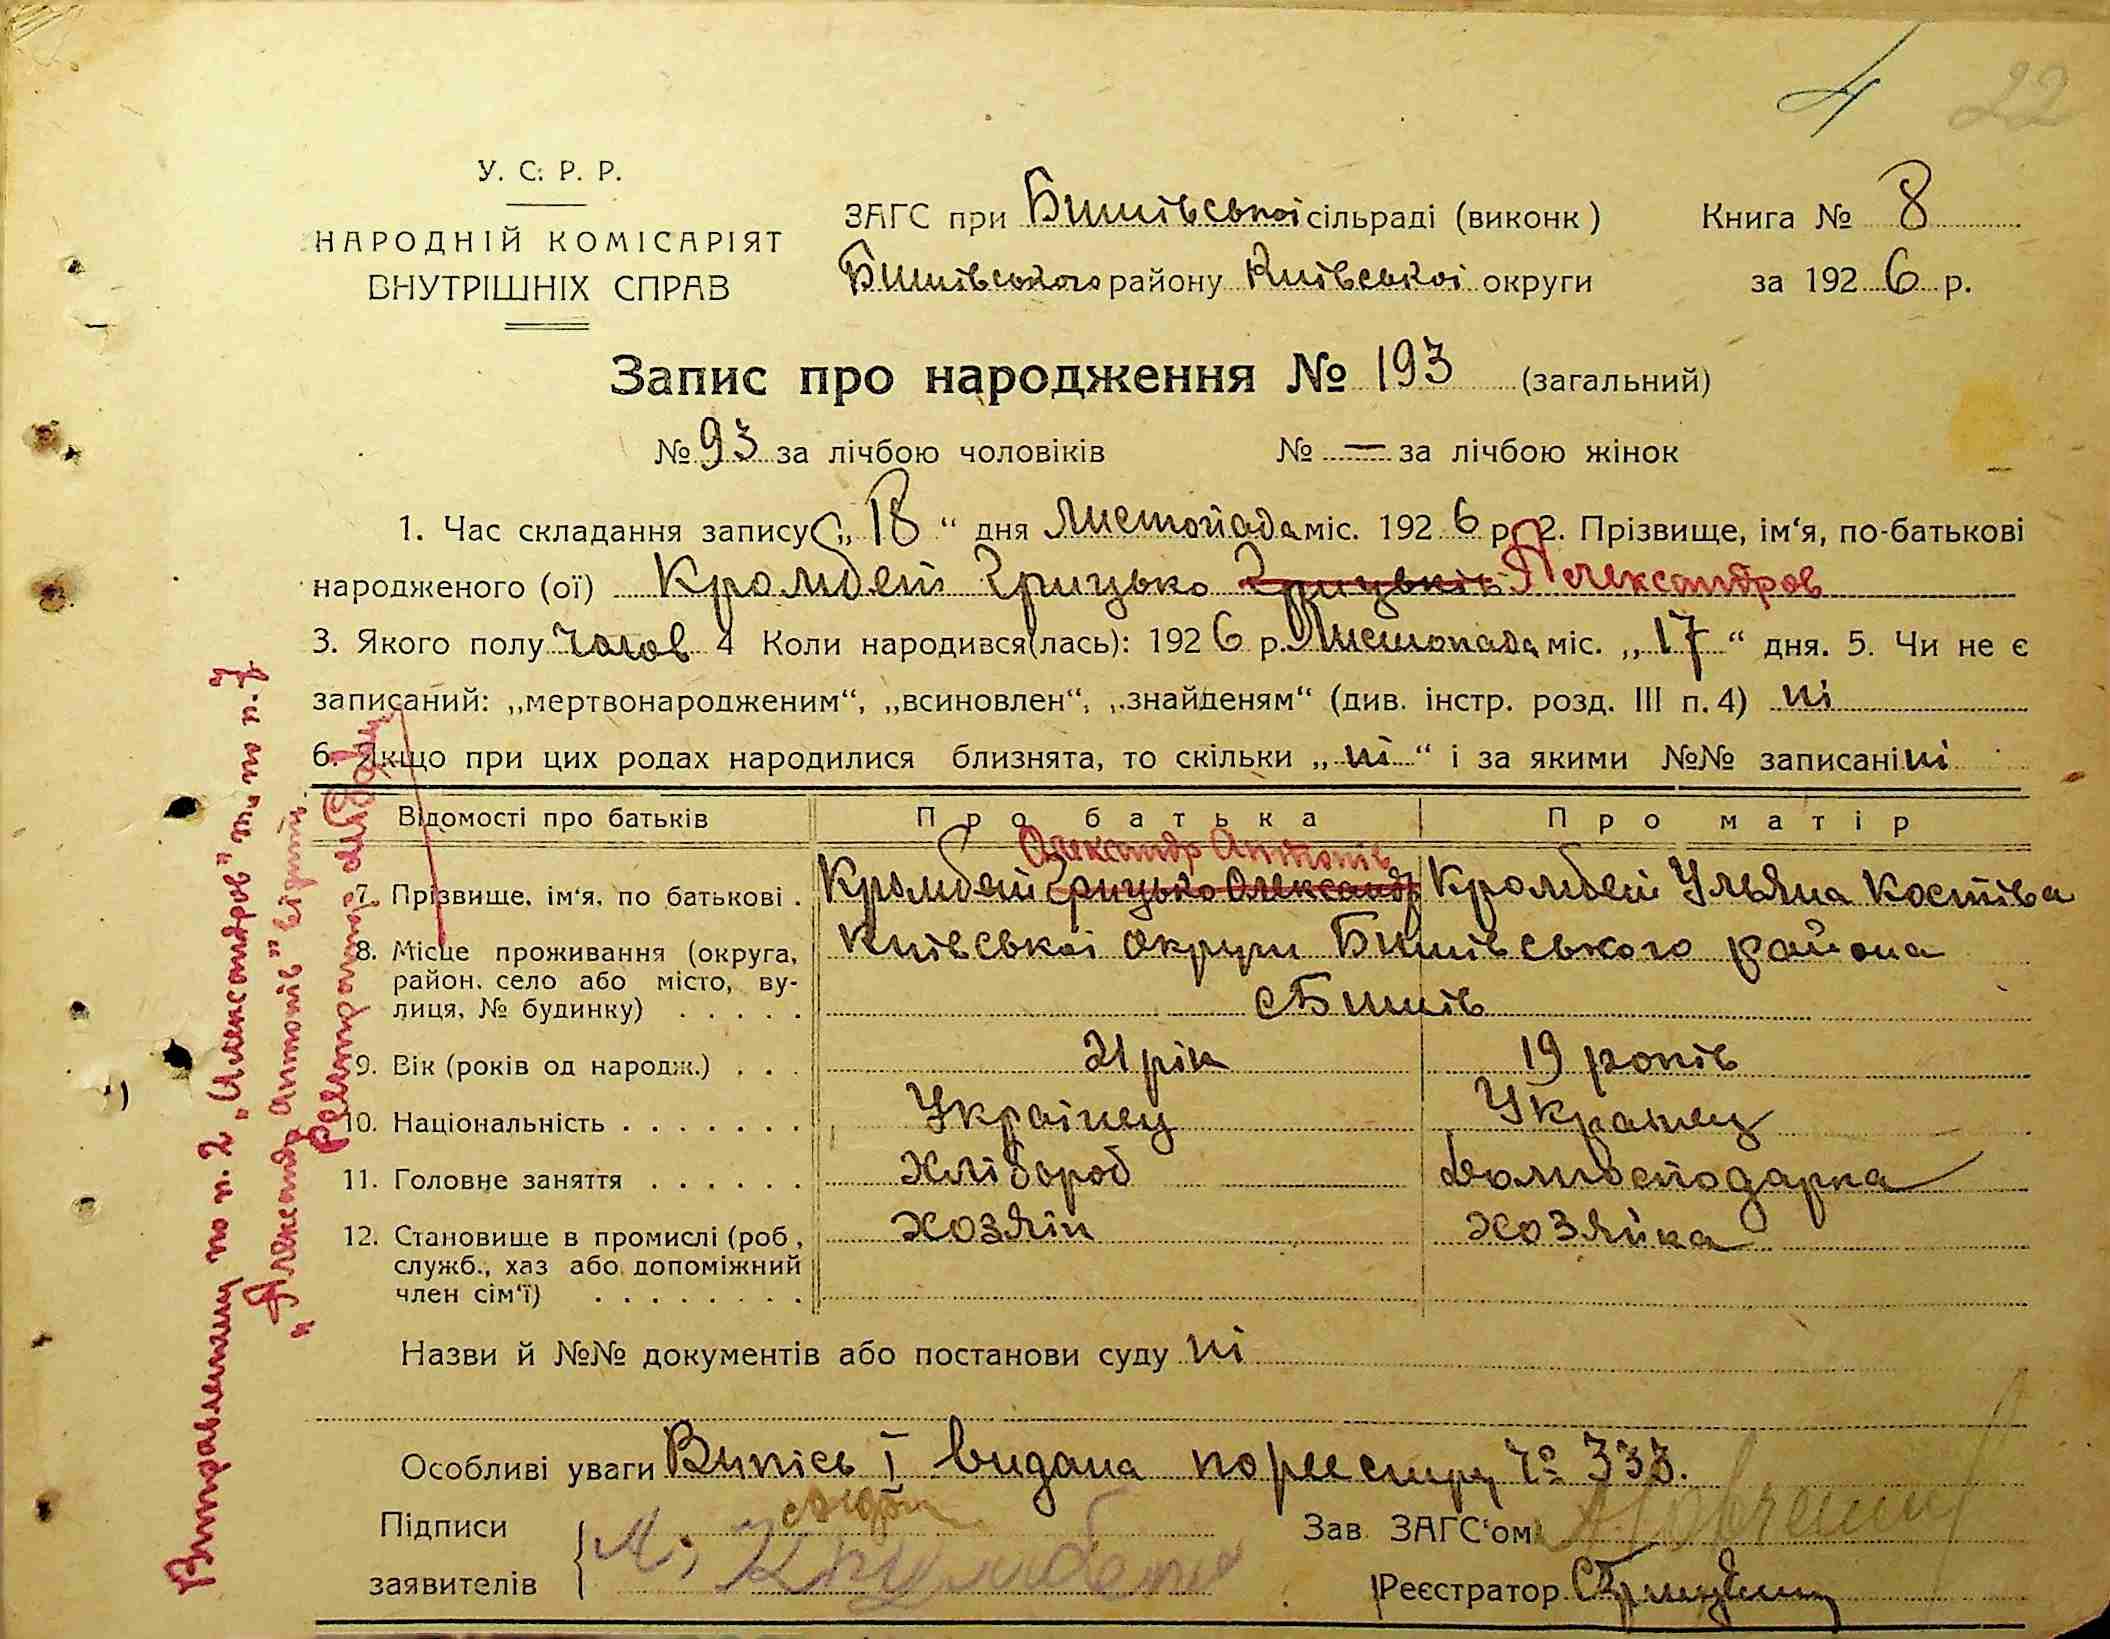 4 22
У. С. Р. Р.
НАРОДНІЙ КОМІСАРІЯТ
ВНУТРІШНІХ СПРАВ
ЗАГС при Бишівської сільраді (виконк)
Бишівського району Київської округи
Книга № 8
за 1926 р.
Запис про народження № 193 (загальний)
№ 93 за лічбою чоловіків № — за лічбою жінок
1. Час складання запису „ 18 “ дня Листопада міс. 1926 р. 2. Прізвище, ім‘я, по-батькові
народженого (ої) Кромбет Грицько Грицьків Александров
3. Якого полу чолов 4 Коли народився(лась): 1926 р. Листопада міс. „ 17 “ дня. 5. Чи не є
записаний: „мертвонародженим“, „всиновлен“, „знайденям“ (див. інстр. розд. III п. 4) ні
6. Якщо при цих родах народилися близнята, то скільки „ ні “ і за якими №№ записані ні
Відомості про батьків Про батька Про матір
Олександр Антонів
7. Прізвище, ім‘я, по батькові . Кромбет Грицько Олександр Кромбет Ульяна Костіва
8. Місце проживання (округа, Київської округи Бишівського района
район. село або місто, ву-
лиця, № будинку) . . . . . с Бишів
9. Вік (років од народж.) . . . 21 рік 19 років
10. Національність . . . . . . . Українец Украінец
11. Головне заняття . . . . . . Хлібороб Домгосподарка
12. Становище в промислі (роб, хозяін хозяйка
служб., хаз або допоміжний
член сім‘ї) . . . . . . . .
Назви й №№ документів або постанови суду ні
Особливі уваги Випісь І видана по реестру № 333.
Підписи
заявителів
Зав. ЗАГС‘ом
Реєстратор
Виправленому по п. 2 „Александров” та по п. 7
„Александр Антонів” вірити
Реєстратор